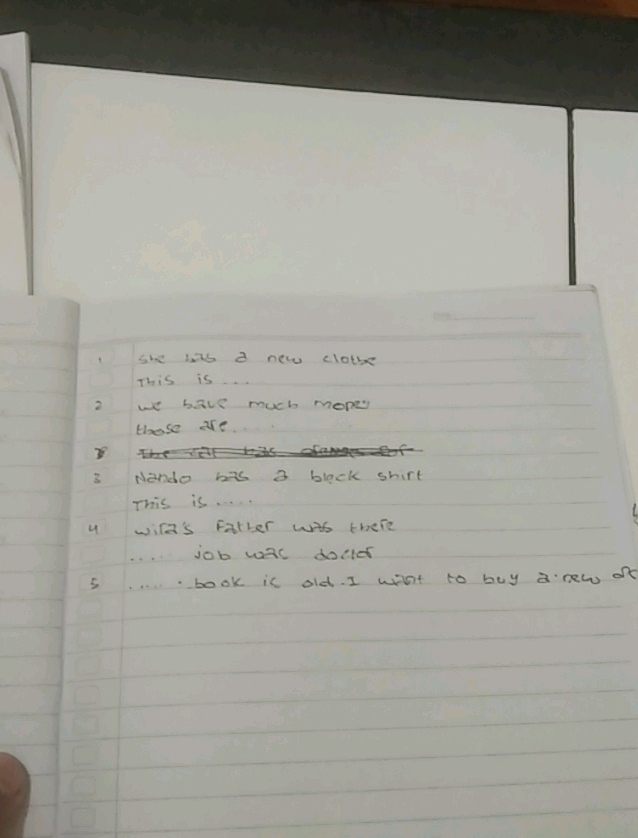 1 She has a new clothe
This is ...
2 we have much money
those are....
3 Nando has a black shirt
This is ....
4 wira's Father was there
.... job was doctor
5 ..... book is old. I want to buy a new